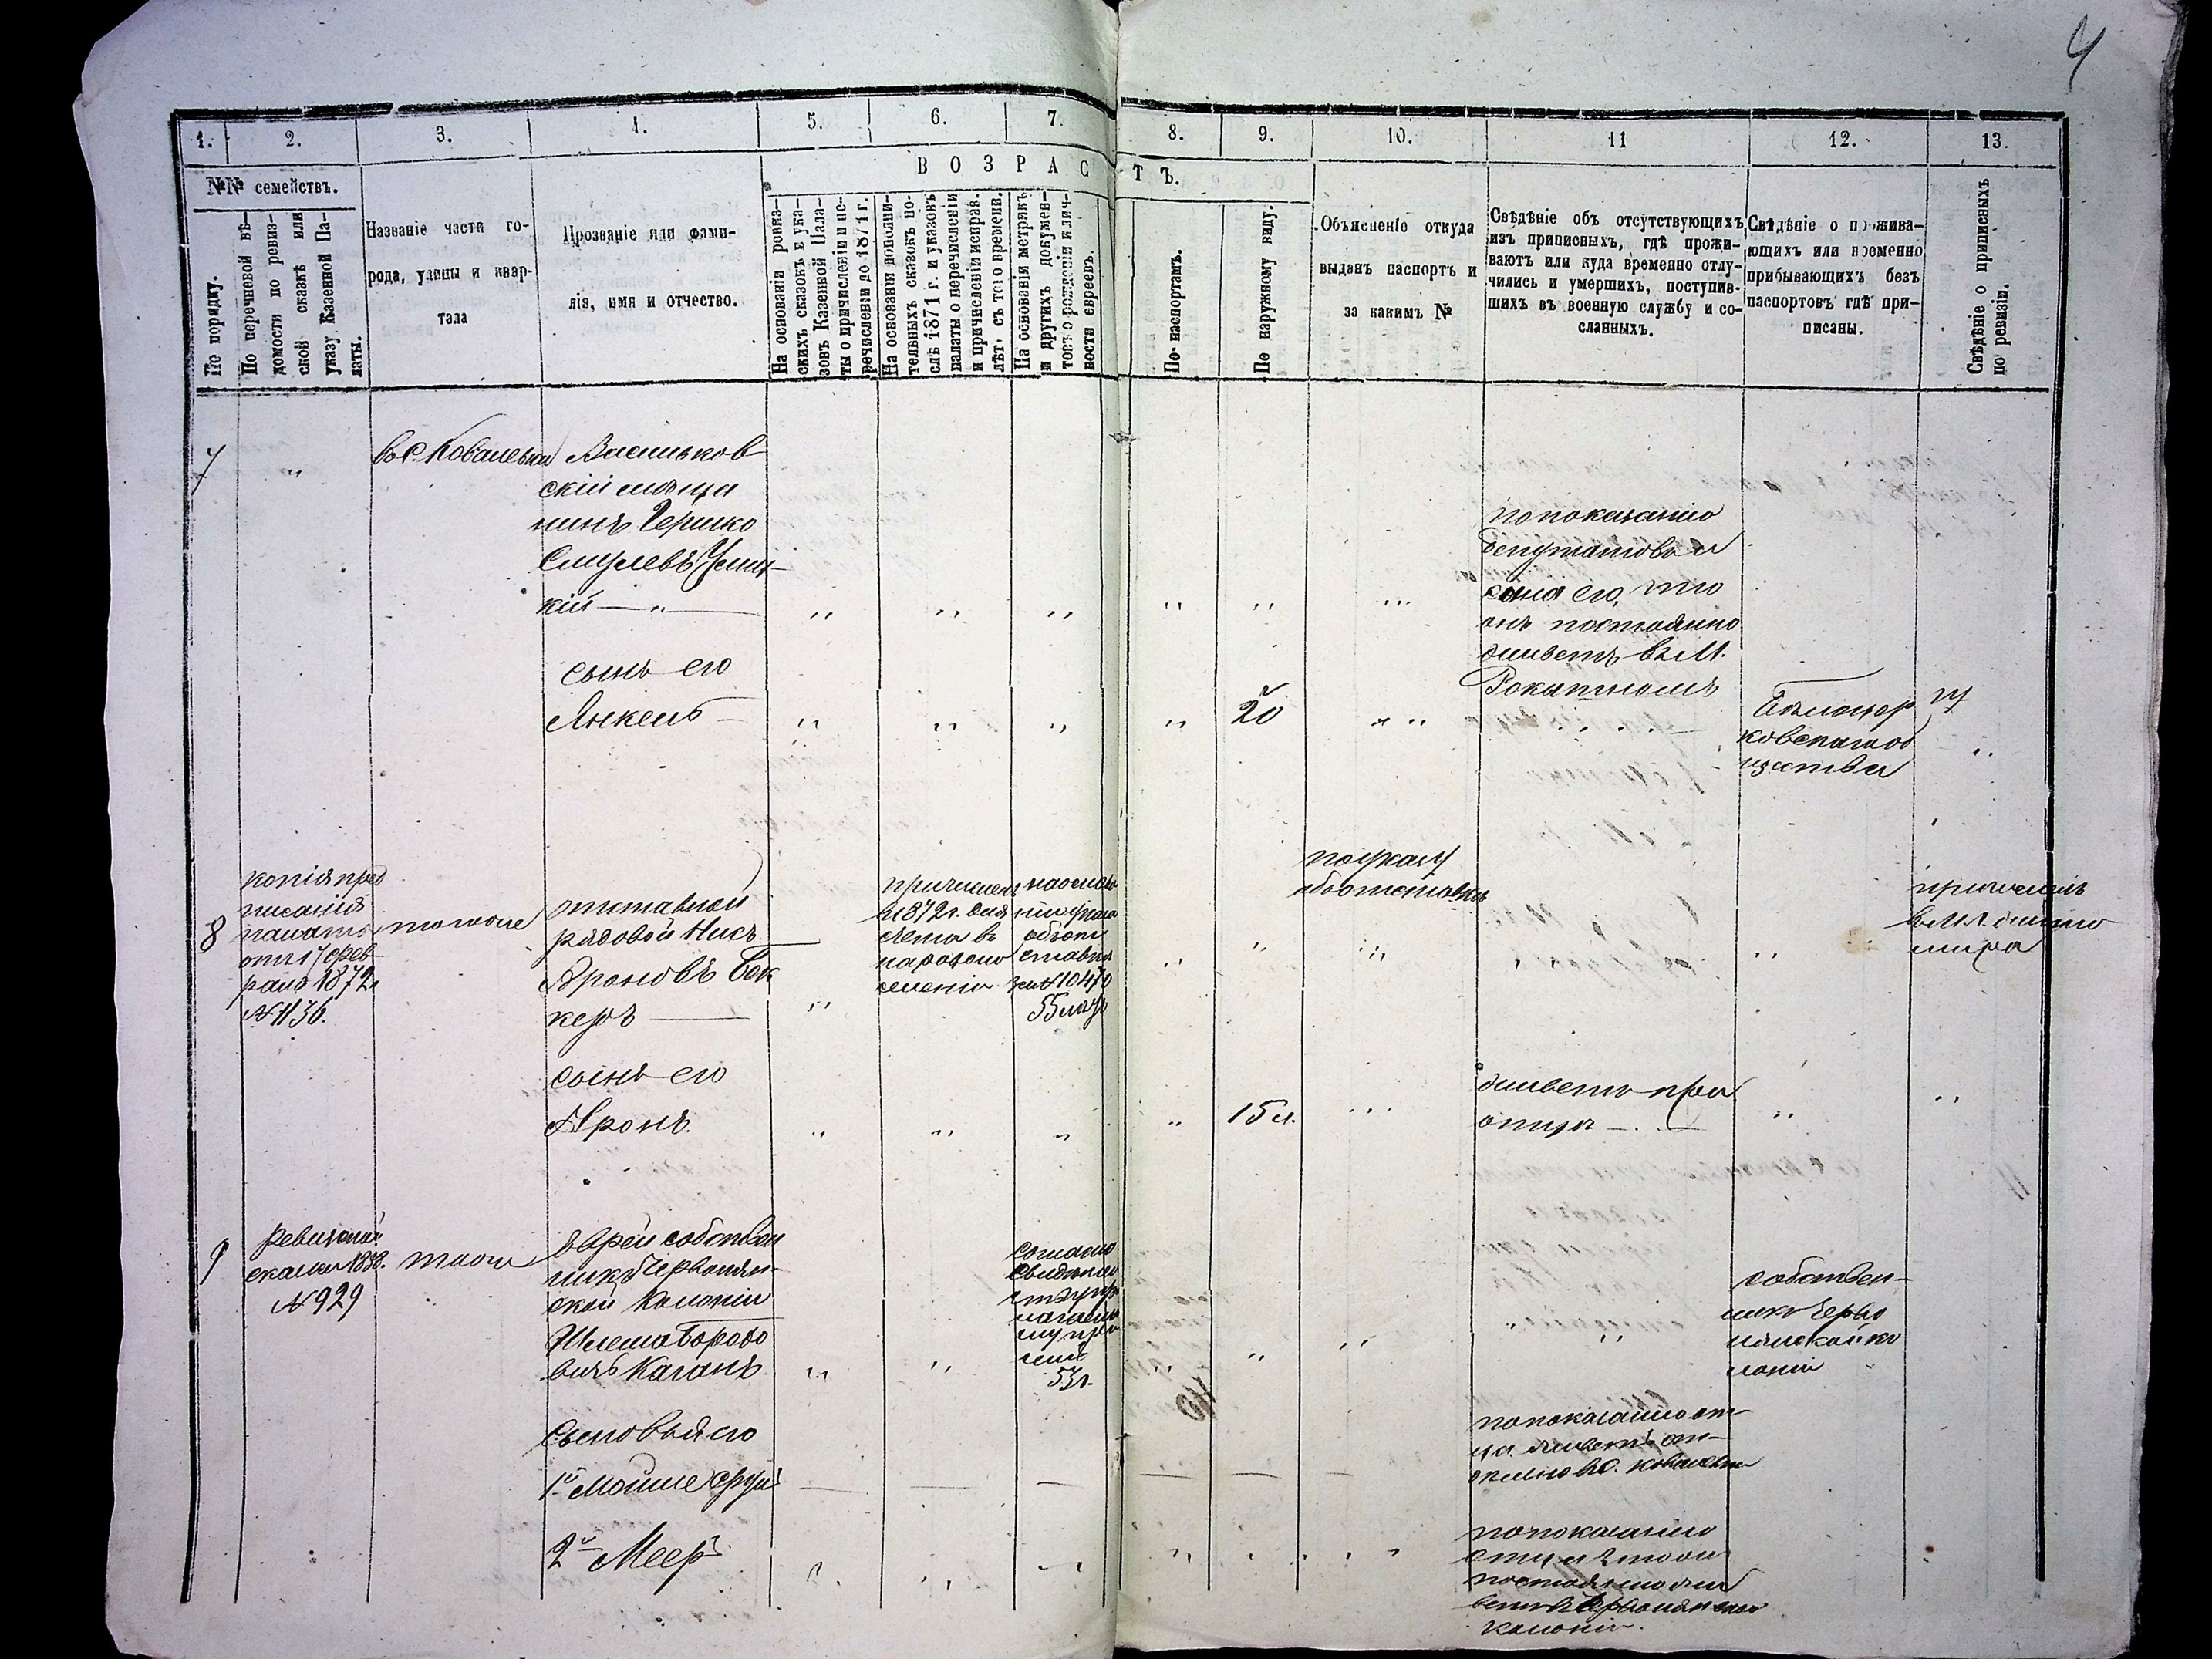 4
1.
2.
3.
4.
5.
6.
7.
8.
9.
10.
11
12.
13.
ВОЗРАС
ТЪ.
№№ семействъ.
По порядку.
По перечневой вѣ-
домости по ревиз-
ской сказкѣ или
указу Казенной Па-
латы.
Названіе части го-
рода, улицы и квар-
тала
Прозваніе или фами-
лія, имя и отчество.
На основаніи ревиз-
скихъ сказокъ и ука-
зовъ Казенной Пала-
ты о причисленіи и пе-
речисленіи до 1871 г.
На основаніи дополни-
тельныхъ сказокъ по-
слѣ 1871 г. и указовъ
палаты о перечисленіи
и причисленіи исправ.
лѣт. съ того времени.
На основаніи метрикъ
и другихъ докумен-
товъ о рожденіи и лич-
ности евреевъ.
По паспортамъ.
По наружному виду.
Объясненіе откуда
выданъ паспортъ и
за какимъ №
Свѣдѣніе объ отсутствующихъ
изъ приписныхъ, гдѣ прожи-
ваютъ или куда временно отлу-
чились и умершихъ, поступив-
шихъ въ военную службу и со-
сланныхъ.
Свѣдѣніе о прожива-
ющихъ или временно
прибывающихъ безъ
паспортовъ гдѣ при-
писаны.
Свѣдѣніе о приписныхъ
по ревизіи.
7
въ с. Ковалевка
Васильков
скій мѣща
нинъ Гершко
Смулевъ
кій
по показанію
депутатовъ и
сына его, что
онъ постоянно
живетъ въ М.
Рокитномъ
сынъ его
Янкель
20
Бѣлоцер
ковскаго об
щества
8
копія пред
писанія
палаты
отъ 17 фев
раля 1872 г.
№ 1136.
тоже
отставной
рядовой
Ароновъ Бок
керъ
причислен
въ 1872 г. для
счета въ
народоно
селеніи
на основа
ніи указа
объ от
ставки
за № 10470
55 лѣтъ
по указу
объ отставкѣ
причисленъ
въ
сынъ его
Аронъ.
15 л.
живетъ при
отцѣ
9
Ревизской
сказки 1858.
№ 929
тоже
Еврей собствен
никъ Червонян-
ской колоніи
Шлема Борохо
вичъ Каганъ
согласно
53 г.
собствен-
никъ Черво
нянской ко
лоніи
40
Сыновья его
1й Мойше Сруль
по показанію от-
ца живетъ от-
дѣльно въ с. Ковалевкѣ
2й Мееръ
по показанію
отца что онъ
постоянно жи
ветъ въ Червонянской
колоніи.